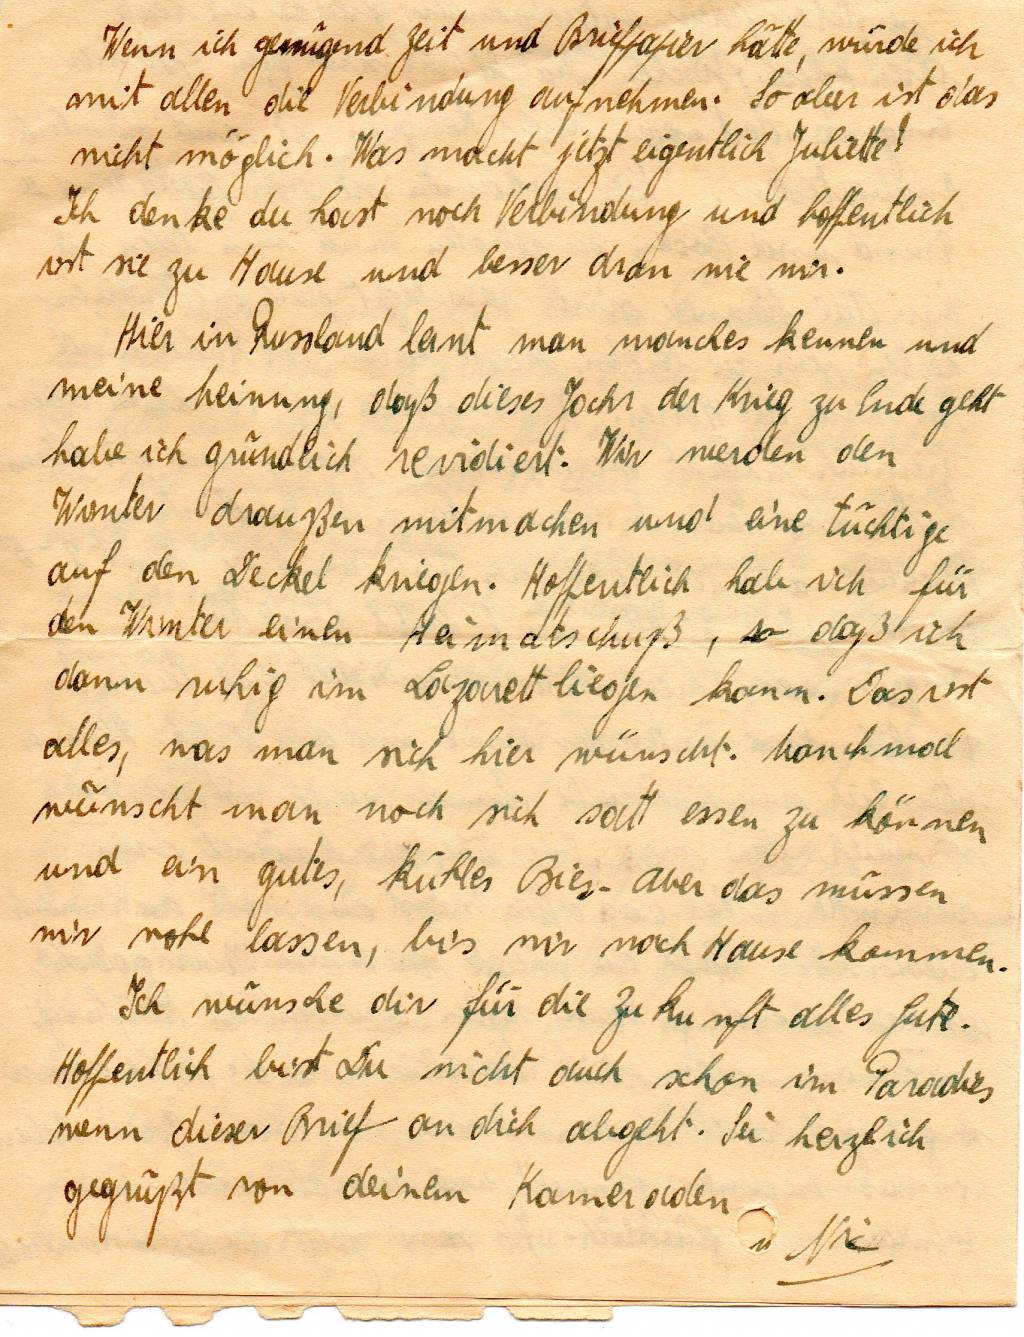 Wenn ich genügend Zeit und Briefpapier hätte, würde ich
mit allen die Verbindung aufnehmen. So aber ist das
nicht möglich. Was macht jetzt eigentlich Juliette!
Ich denke du hast noch Verbindung und hoffentlich
ist sie zu Hause und besser dran wie wir.
Hier in Russland lernt man manches kennen und
meine Meinung, daß dieses Jahr der Krieg zu Ende geht
habe ich gründlich revidiert. Wir werden den
Winter draußen mitmachen und eine tüchtige
auf den Deckel kriegen. Hoffentlich hab ich für
den Winter einen Heimatschuß, daß ich
dann ruhig im Lazarett liegen kann. Das ist
alles, was man sich hier wünscht. Manchmal
wünscht man noch sich satt essen zu können
und ein gutes, kühles Bier. Aber das müssen
wir wohl lassen, bis wir nach Hause kommen.
Ich wünsche dir für die Zukunft alles Gute.
Hoffentlich bist Du nicht auch schon im Paradies
wenn dieser Brief an dich abgeht. Sei herzlich
gegrüßt von deinem Kameraden